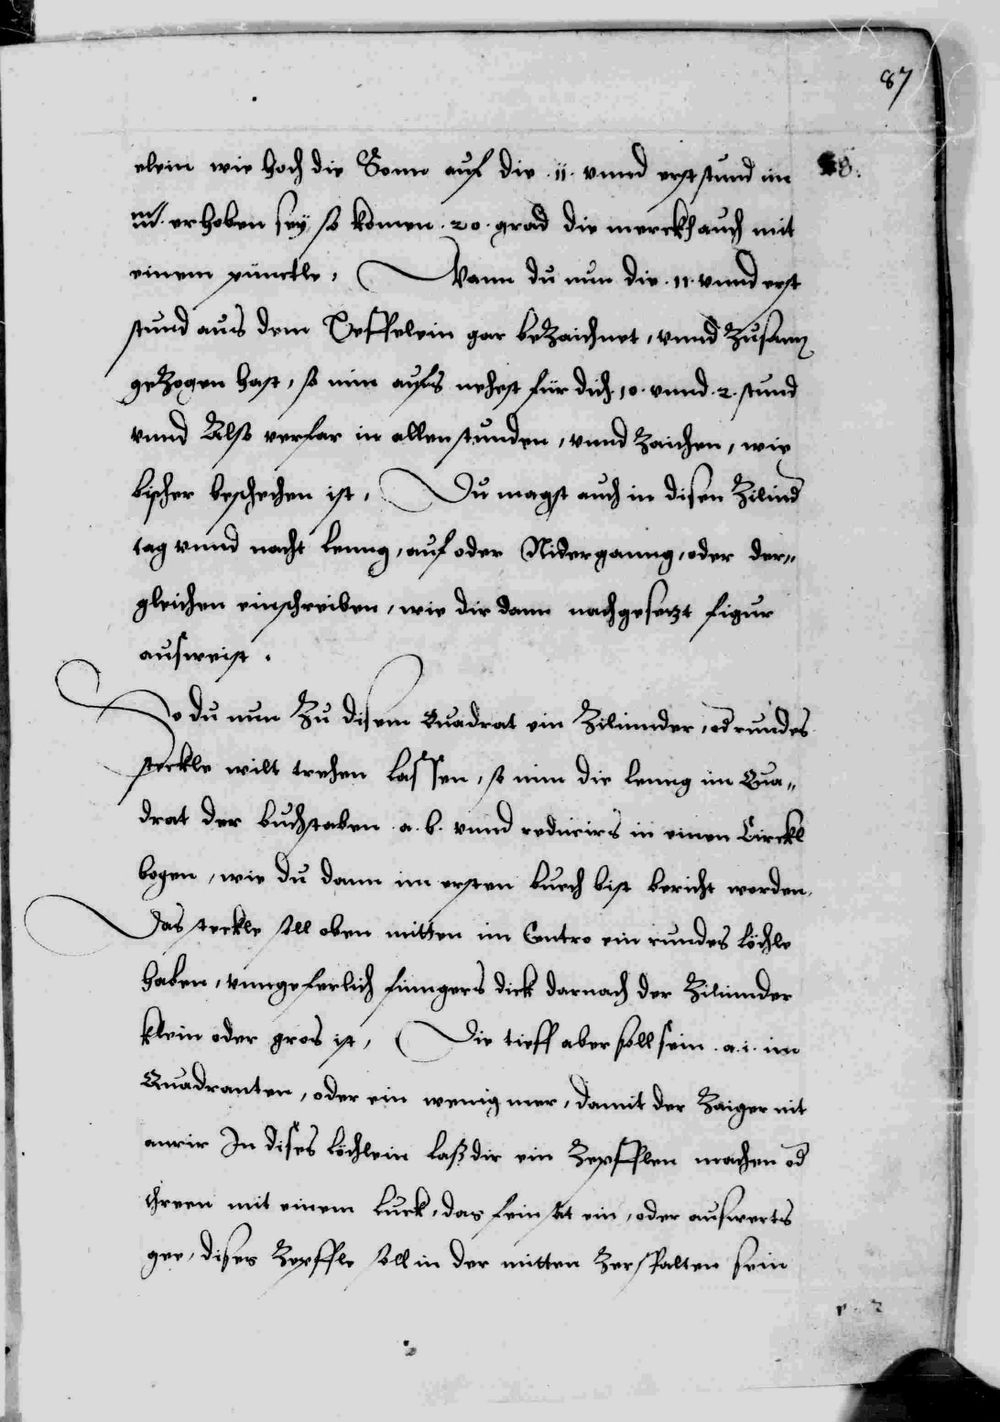 87
elein wie hoch die Sonn auf die .11. vnnd erst stund im
erhoben seÿ so komen .20. grad die merckh auch mit
einem pünctle, Wann du nun die .11. vnnd erst
stund aus dem Deffelein gar beZaichnet, vnnd Zusam
geZogen hast, so nim aufs nehest für dich 10. vnnd .2. stund
vnnd Alßo verfar in allen stunden, vnnd Zaichen, wie
bischer beschechen ist, Du magst auch in disen Zilind
tag vnnd nacht lenng, auf oder Niderganng, oder der„
gleichen einschreiben, wie dir dann nachgesetzt figur
ausweist.
So du nun Zu disem Quadrat ein Zilinnder, od rundes
steckle wilt trehen lassen, so nim die leng im Qua„
drat der buchstaben .a. b. vnnd reducirs in einen Circkl
bogen, wie du dann im ersten buech bist bericht worden,
Das steckle soll oben mitten im Centro ein rundes löchle
haben, vnngeferlich finngers dick darnach der Zilinnder
klein oder gros ist, Die tieff aber soll sein .a. i. im
Quadranten, oder ein wenig mer, damit der Zaiger nit
anrir In dises löchlein laß dir ein Zepfflen machen od
threen mit einem luck, das fein sat ein, oder auswerts
gee, dises Zepffle soll in der mitten Zerspalten sein